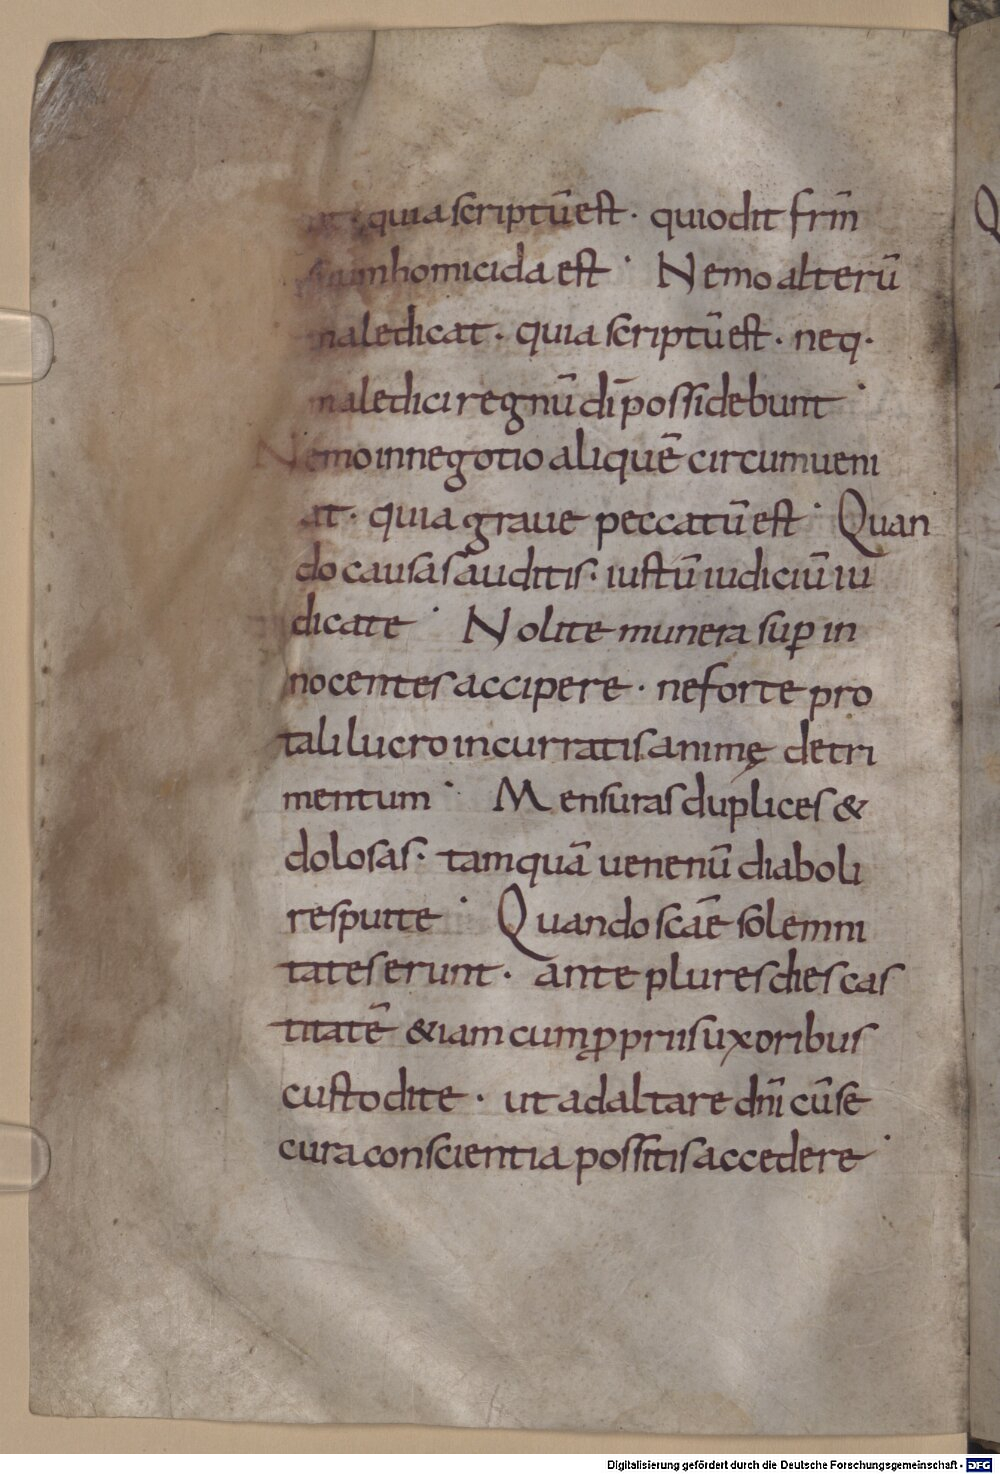 at quia scriptū est · qui odit frm̄
suum homicida est · Nemo alterū
maledicat · quia scriptū est · neq·
maledici regnū dī possidebunt ·
Nemo in negotio aliquē circumueni
at · quia graue peccatū est · Quan
do causas auditis · iustū iudiciū iu
dicate · Nolite munera suꝑ in
nocentes accipere · ne forte pro
tali lucro incurratis animę detri
mentum · Mensuras duplices &
dolosas · tamquā uenenū diaboli
respuite · Quando scāe solemni
tates erunt · ante plures dies cas
titatē &iam cum ꝓpriis uxoribus
custodite · ut ad altare dn̄i cū se
cura conscientia possitis accedere ·
Digitalisierung gefördert durch die Deutsche Forschungsgemeinschaft - DFG